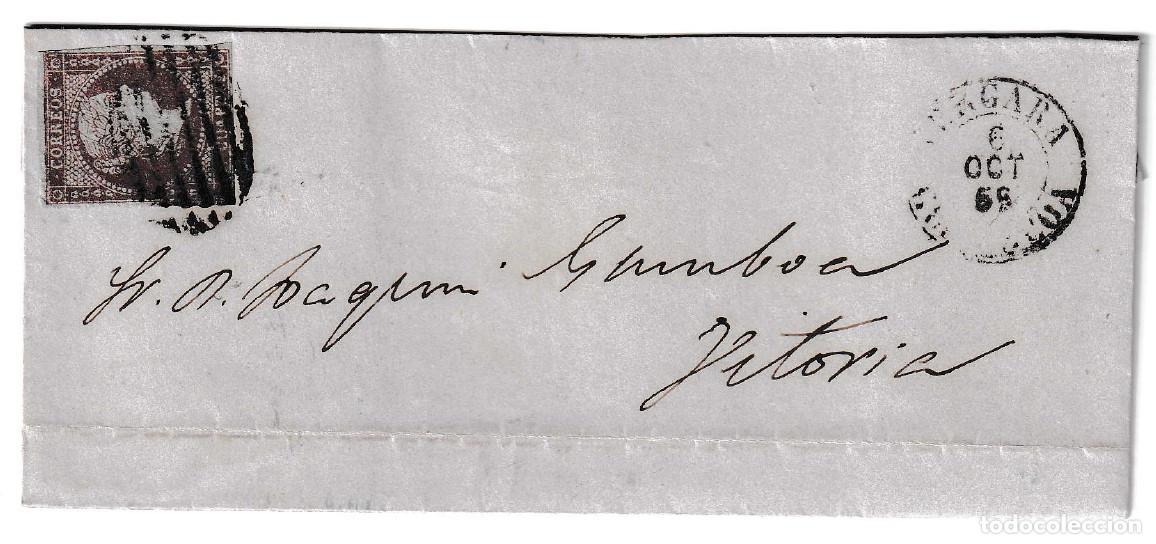 CORREOS
VERGARA
6
OCT
GUIPUZCOA
Sr. D. Joaquin Gamboa
Vitoria
todocoleccion